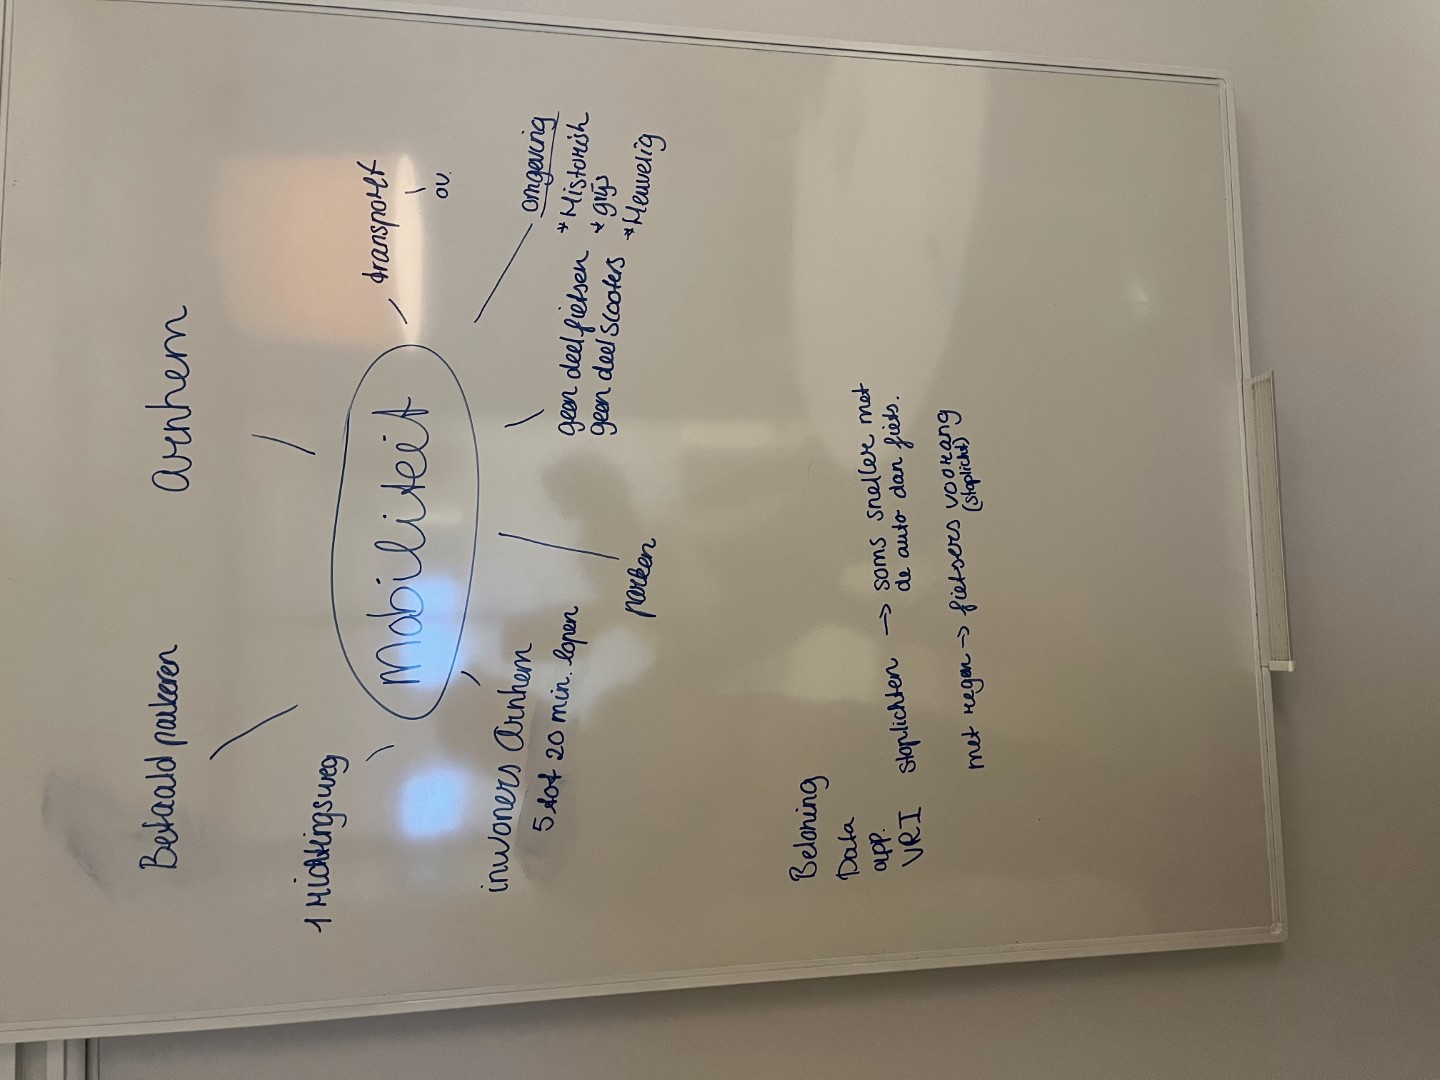 Betaald parkeren
Arnhem
1 richtingsweg
Mobiliteit
transport
ov.
inwoners Arnhem
5 tot 20 min. lopen
parken
geen deelfietsen
geen deelscooters
omgeving
* Historish
* grijs
* Heuvelig
Beloning
Data
app.
VRI stoplichten → soms sneller met
de auto dan fiets.
met regen → fietsers voorang
(stoplicht)